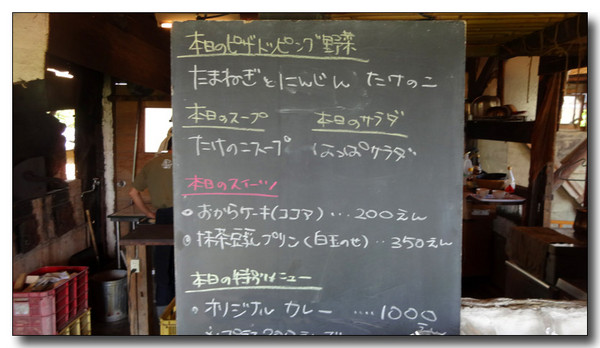 本日のピザトッピング野菜
たまねぎとにんじん たけのこ
本日のスープ 本日のサラダ
たけのこスープ はっぱサラダ
本日のスイーツ
おからケーキ(ココア)…200えん
抹茶豆乳プリン(白玉のせ)‥350えん
本日の特別メニュー
オリジナル カレー ‥‥1000
えん